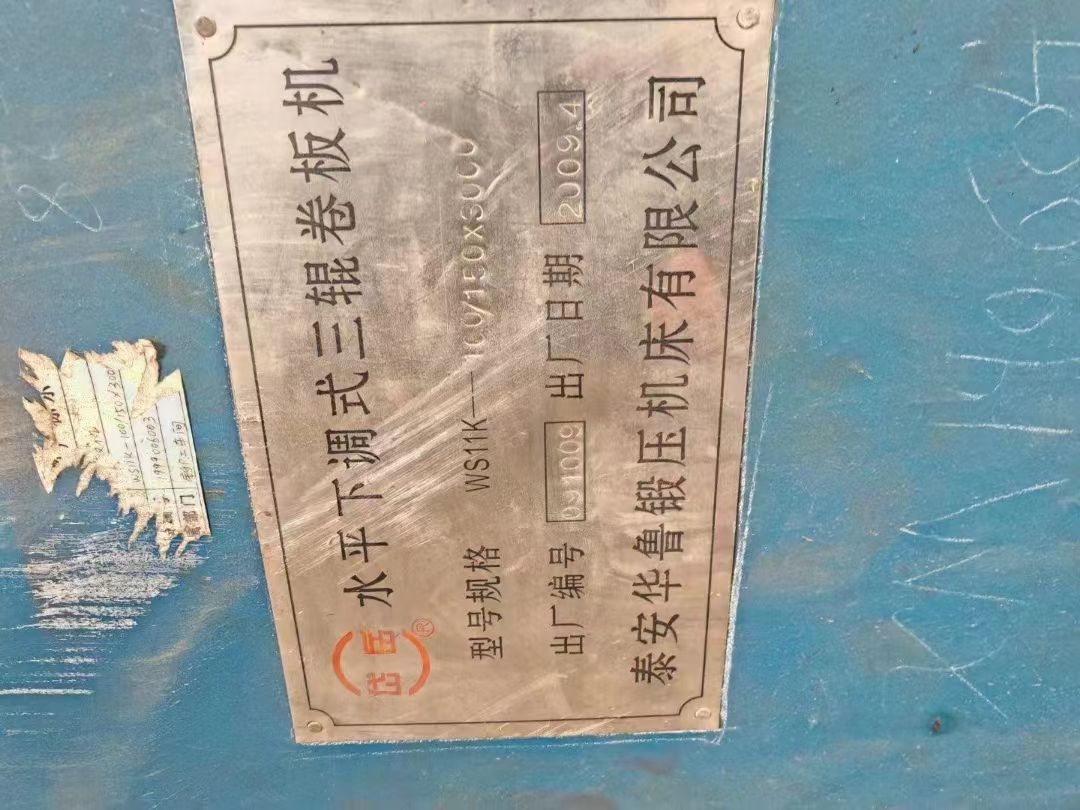 岱岳® 水平下调式三辊卷板机
型号规格 WS11K—100/150X3000
出厂编号 091009 出厂日期 2009.4
泰安华鲁锻压机床有限公司
WS11K-100/150X3000
1999006003
部门
8